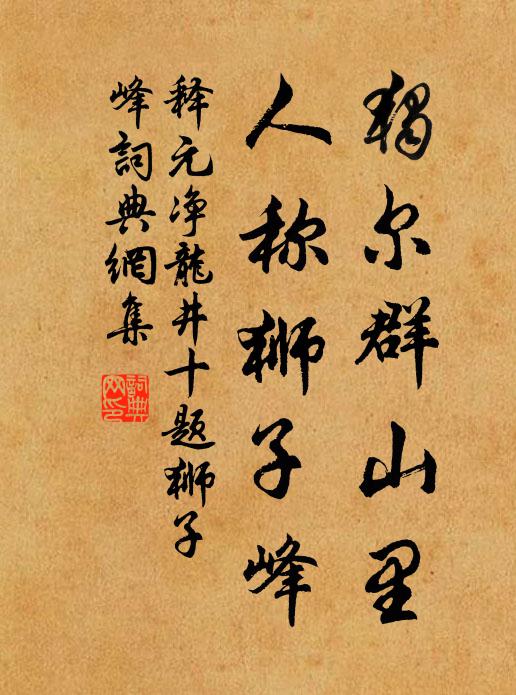 獨尔群山里
人称獅子峰
释元净龍井十题獅子
峰詞典網集
詞典網印